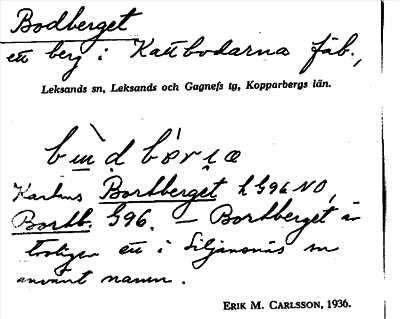 Bodberget
ett berg i Kattbodarna fäb.,
Leksands sn, Leksands och Gagnefs tg, Kopparbergs län.
Kartans Bortberget h G96 NO,
Bortb. G96. — Bortberget är
troligen ett i Siljansnäs sn
använt namn.
ERIK M. CARLSSON, 1936.